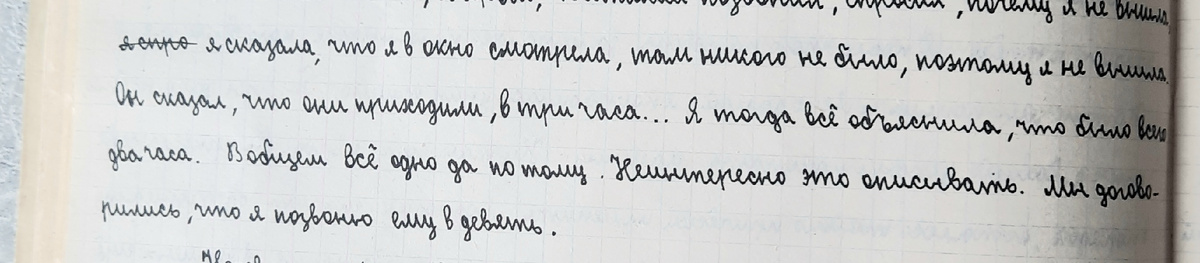 позвонил, спросил, почему я не вышла,
я спро я сказала, что я в окно смотрела, там никого не было, поэтому я не вышла.
Он сказал, что они приходили, в три часа... Я тогда всё объяснила, что было всего
два часа. Вобщем всё одно да потому. Неинтересно это описывать. Мы догово-
рились, что я позвоню ему в девять.